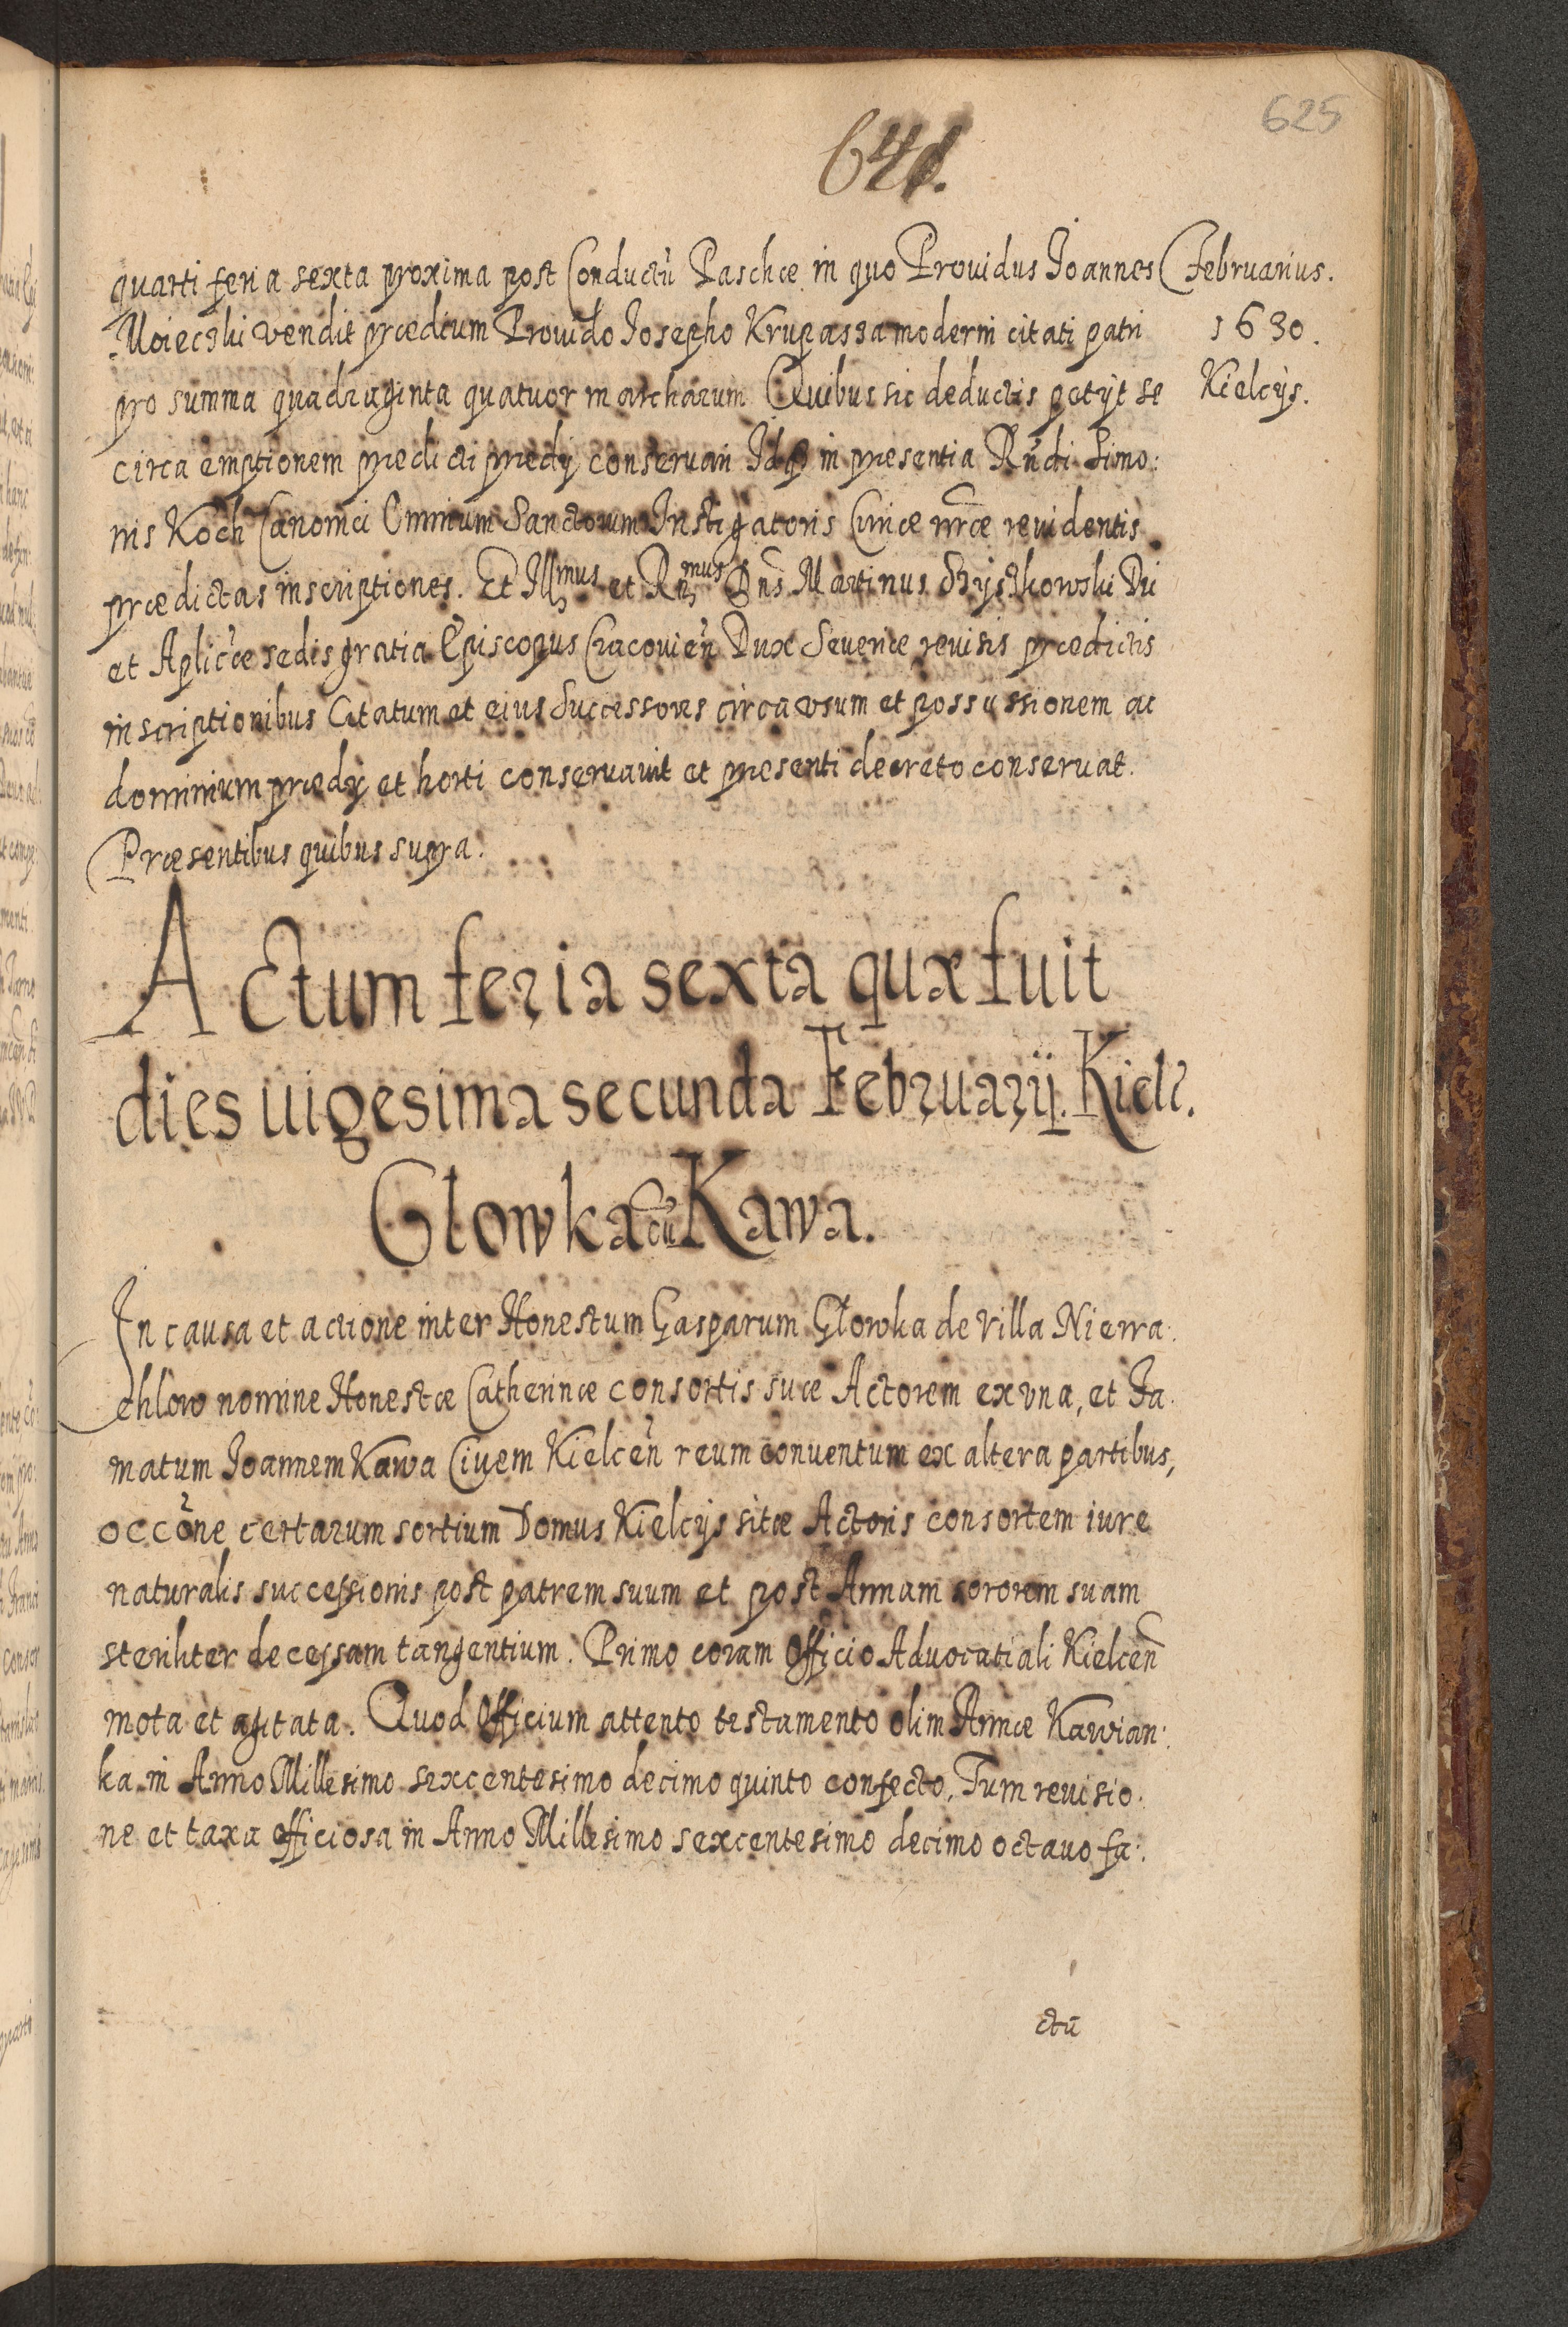 625
641.
quarti feria sexta proxima post Conductũ Paschæ in quo Prouidus Joannes
Februarius.
Moiecski vendit prædium Prouido Josepho Krupassa moderni citati patri
1630.
pro summa quadraginta quatuor marcharum Quibus sic deductis petÿt se
Kielcÿs.
circa emptionem predicti predÿ conseruari Idq in presentia Rñdi Simo:
nis Koch Canonici Omnium Sanctorum Instigatoris Curiæ nræ reuidentis
prædictas inscriptiones. Et Illmus et Rmus Dñs Martinus Szÿszkowski Dei
et Aplicæ sedis gratia Episcopus Cracouien Dux Seueriæ reuisis prædictis
inscriptionibus Citatum et eius Successores circa vsum et possessionem ac
dominium prædÿ et horti conseruauit et presenti decreto conseruat.
Præsentibus quibus supra.
Actum feria sexta quæ fuit
dies uigesima secunda Februarÿ. Kielc.
Glowka cũ Kawa.
In causa et actione inter Honestum Gasparum Głowka de Villa Niewa:
chlow nomine Honestæ Catherinæ consortis suæ Actorem ex vna, et Fa:
matum Joannem Kawa Ciuem Kielcen reum conuentum ex altera partibus,
occõne certarum sortium Domus Kielcÿs sitæ Actoris consortem iure
naturalis successionis post patrem suum et post Annam sororem suam
steriliter decessam tangentium. Primo coram Officio Aduocatiali Kielcen
mota et agitata. Quod Officium attento testamento olim Annæ Kawian:
ka in Anno Millesimo sexcentesimo decimo quinto confecto, Tum reuisio:
ne et taxa officiosa in Anno Millesimo sexcentesimo decimo octauo fa:
ctũ